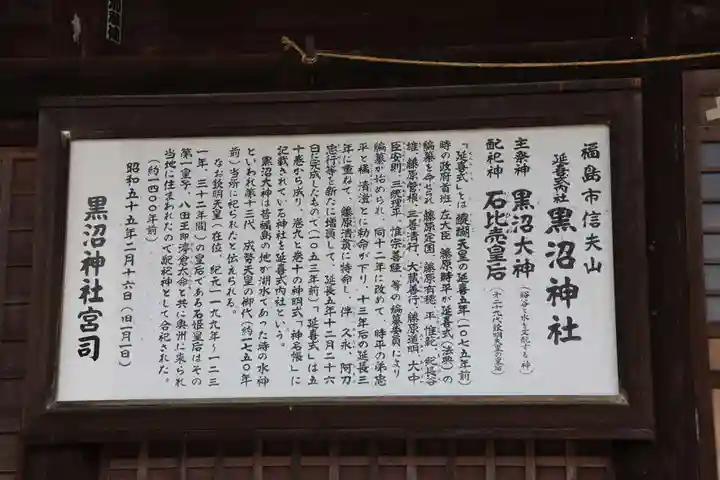 福島市信夫山
延喜式内社 黒沼神社
主祭神 黒沼大神（谿谷と水を支配する神）
配祀神 石比売皇后（オ二十九代欽明天皇の皇后）
「延喜式」とは醍醐天皇の延喜五年（一〇七五年前）
時の政府首班 左大臣 藤原時平が延喜式（法典）の
編纂を命ぜられ 藤原定国、藤原有穂、平惟範、紀長谷
雄、藤原菅根、三善清行、大蔵善行、藤原道明、大中
臣安則、三統理平、惟宗善経、等の編纂委員により
編纂が始められ、同十二年に改めて、時平の弟忠
平と橘 清澄とに勅命が下り、十三年后の延長三
年に重ねて、藤原清貫に特命し、伴 久永、阿刀
忠行等を新たに増員して、延長五年十二月二十六
日に完成したもので（一〇五三年前）「延喜式」は五
十巻から成り、巻九と巻十の神明式「神名帳」に
記載されている神社を延喜式内社という。
黒沼大神は昔福島の地が湖水であった時の水神
といわれ第十三代、成務天皇の御代（約一七五〇年
前）当所に祀られたと伝えられる。
なお欽明天皇（在位、紀元一一九九年〜一二三
一年、三十二年間）の皇后である石姫皇后はその
第一皇子、八田王即渟倉太命と共に奥州に来られ
当地に住まわれたので配祀神として合祀された。
（約一四〇〇年前）
昭和五十五年二月十六日（旧一月一日）
黒沼神社宮司